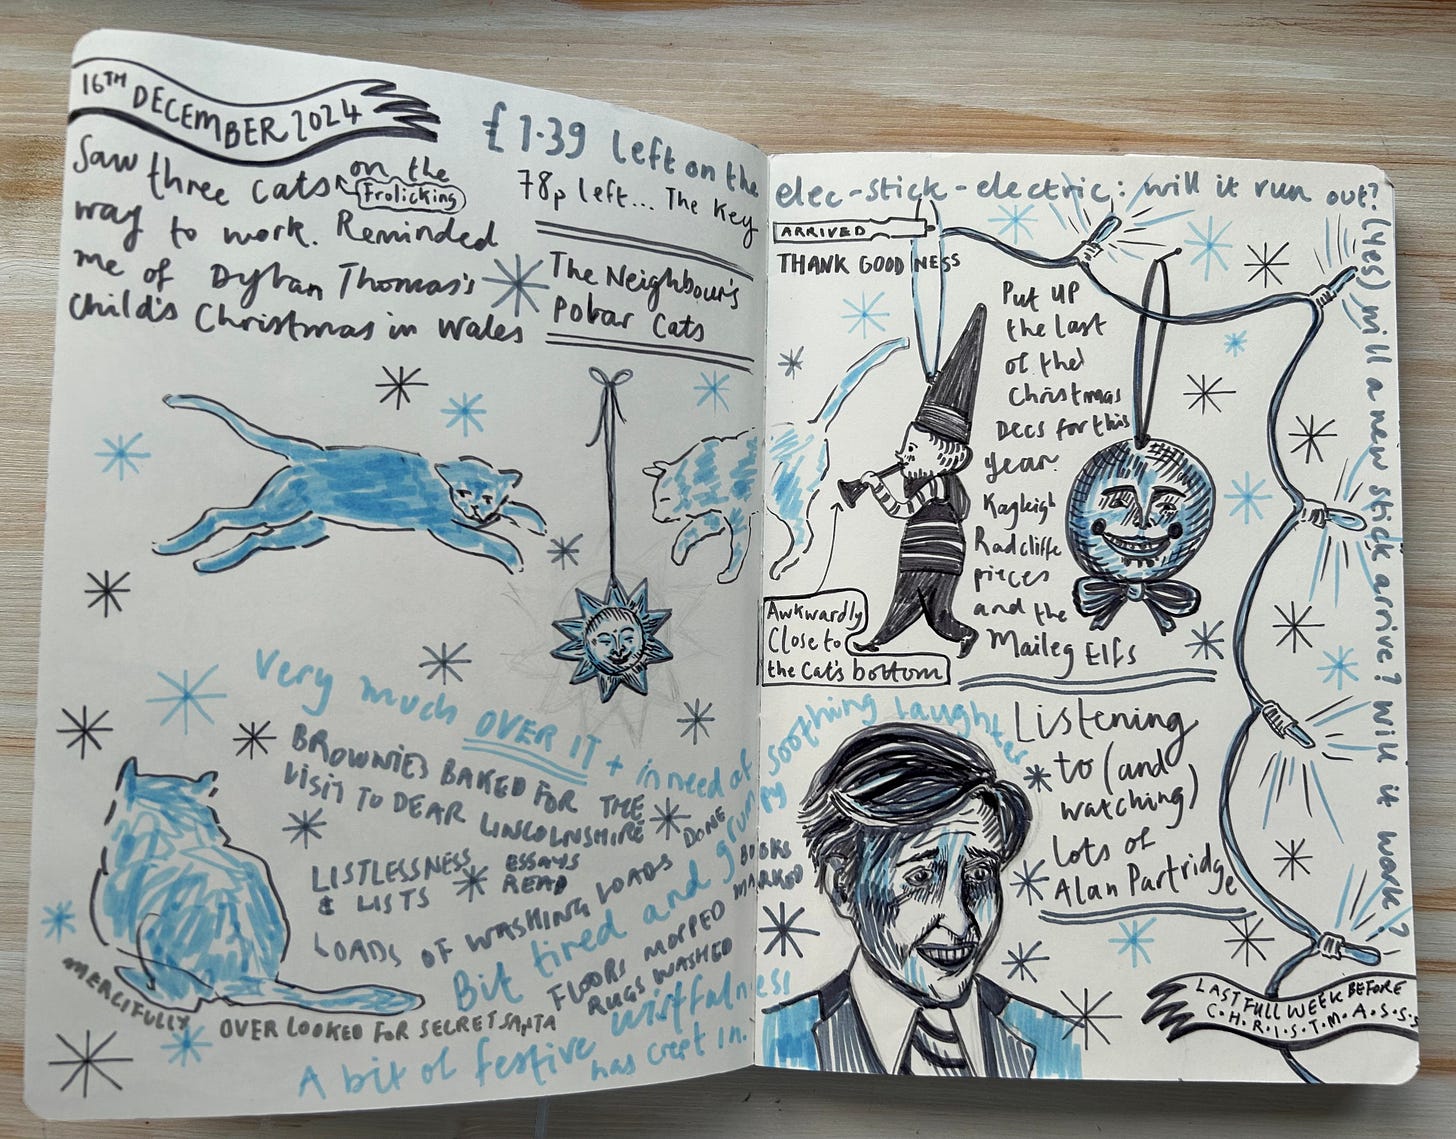 16TH DECEMBER 2024
Saw three cats on the
Frolicking
way to work. Reminded
me of Dylan Thomas's
Child's Christmas in Wales
£1.39 left on the elec-stick-electric: will it run out?
(yes) will a new stick arrive? will it work?
78p left... The Key
ARRIVED
THANK GOODNESS
The Neighbour's
Polar Cats
Put up
the last
of the
Christmas
Decs for this
year.
Kayleigh
Radcliffe
pieces
and the
Maileg Elfs
Awkwardly
Close to
the Cat's bottom
Very much OVER IT + in need of soothing laughter
BROWNIES BAKED FOR THE
VISIT TO DEAR LINCOLNSHIRE
LISTLESSNESS
& LISTS
ESSAYS
READ
LOADS OF WASHING LOADS DONE
BOOKS
MARKED
Bit tired and grumpy
FLOORS MOPPED
RUGS WASHED
MERCIFULLY
OVERLOOKED FOR SECRET SANTA
A bit of festive wistfulness
has crept in.
Listening
to (and
watching)
lots of
Alan Partridge
LAST FULL WEEK BEFORE
C.H.R.I.S.T.M.A.S.S.S